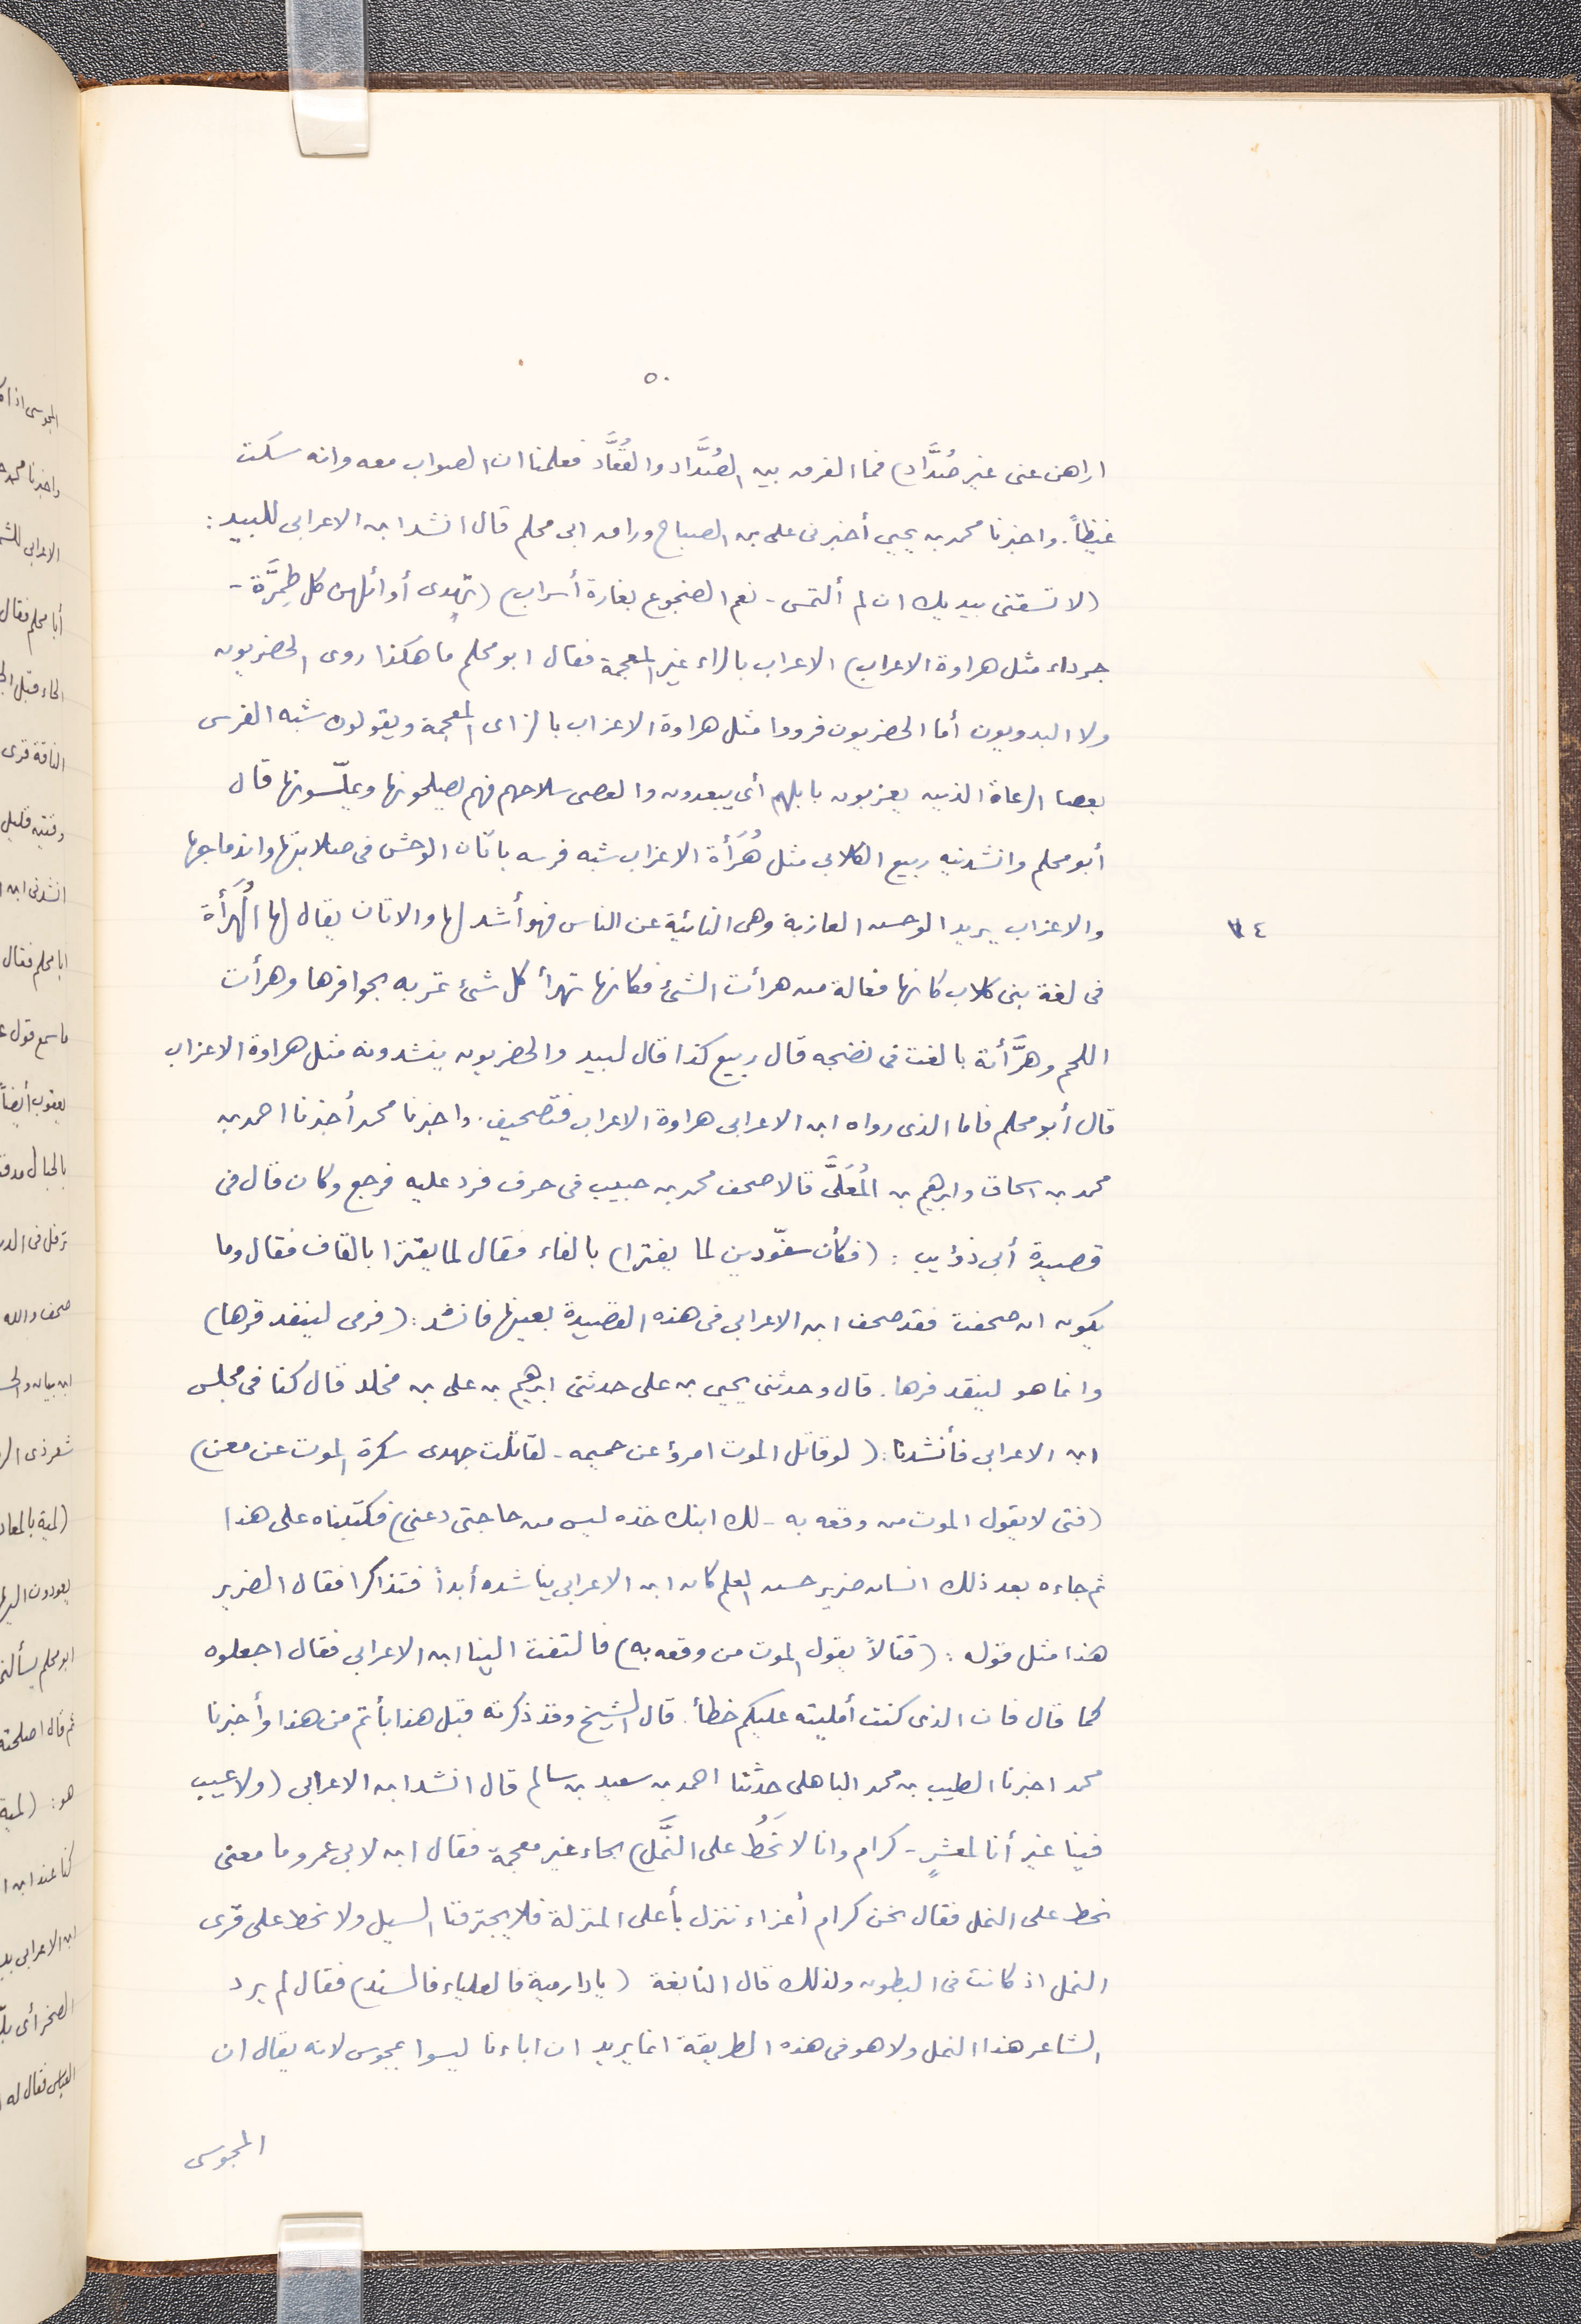 ٥٠
اراهن عنى غير صُدَّاد) فما الفرق بين الصُدَّاد والقُعَّاد فعلمنا ان الصواب معه وانه سكت
غيظاً. واخبرنا محمد بن يحيى أخبرنى على بن الصباح وراق ابى محلم قال انشد ابن الاعرابى للبيد:
(لا تسقنى بيديك ان لم ألتمس - نعم الضجوع بغارة أسراب) (تهدى أوائلهن كل طِمِرَّة -
جرداء مثل هراوة الاعراب) الاعراب بالراء غير المعجمة فقال ابو محلم ما هكذا روى الحضريون
ولا البدويون أما الحضريون فرووا مثل هراوة الاعزاب بالزاى المعجمة ويقولون شبه الفرس
بعصا الرعاة الذين يعزبون بابلهم أى يبعدون والعصى سلاحهم فهم يصلحونها ويملّسونها قال
أبو محلم وانشدنيه ربيع الكلابى مثل هُرَأة الاعزاب شبه فرسه باتان الوحش فى صلابتها واندماجها
٧٤
والاعزاب يريد الوحش العازبة وهى النائية عن الناس فهو أشد لها والاتان يقال لها الهُرَأة
فى لغة بنى كلاب كانها فعالة من هرأت الشئ فكانها تهرأ كل شئ تمر به بحوافرها وهرأت
اللحم وهرَّأته بالغت فى نضجه قال ربيع كذا قال لبيد والحضريون ينشدونه مثل هراوة الاعزاب
قال أبو محلم فاما الذى رواه ابن الاعرابى هراوة الاعراب فتصحيف. واخبرنا محمد أخبرنا احمد بن
محمد بن اسحاق وابرهيم بن المُعَلَّى قالا صحف محمد بن حبيب فى حرف فرد عليه فرجع وكان قال فى
قصيدة أبى ذؤيب: (فكأن سفّودين لما يفترا) بالفاء فقال لما يقترا بالقاف فقال وما
يكون ان صحفت فقد صحف ابن الاعرابى فى هذه القصيدة بعينها فانشد: (فرمى لينفد قرها)
وانما هو لينقد فرها. قال وحدثنى يحيى بن على حدثنى ابرهيم بن على بن مخلد قال كنا فى مجلس
ابن الاعرابى فأنشدنا: (لو قاتل الموت امرؤ عن حميمه - لقاتلت جهدى سكرة الموت عن معن)
(فتى لا يقول الموت من وقعه به - لك ابنك خذه ليس من حاجتى دعنى) فكتبناه على هذا
ثم جاءه بعد ذلك انسان ضرير حسن العلم كان ابن الاعرابى يناشده أبداً فتذاكرا فقال الضرير
هذا مثل قوله: (قتالاً يقول الموت من وقعه به) فالتفت الينا ابن الاعرابى فقال اجعلوه
كما قال فان الذى كنت أمليته عليكم خطأ. قال الشيخ وقد ذكرته قبل هذا بأتم من هذا وأخبرنا
محمد اخبرنا الطيب بن محمد الباهلى حدثنا احمد بن سعيد بن سالم قال انشد ابن الاعرابى (ولا عيب
فينا غير أنا لمعشرٍ - كرام وانا لا نَحُطُ على النَّمل) بحاء غير معجمة فقال ابن لابى عمرو ما معنى
نحط على النمل فقال نحن كرام أعزاء ننزل بأعلى المنزلة فلا يجترفنا السيل ولا نحط على قرى
النمل اذ كانت فى البطون ولذلك قال النابغة (يا دار مية فالعلياء فالسند) فقال لم يرد
الشاعر هذا النمل ولا هو فى هذه الطريقة انما يريد ان اباءنا ليسوا بمجوس لانه يقال ان
المجوسى